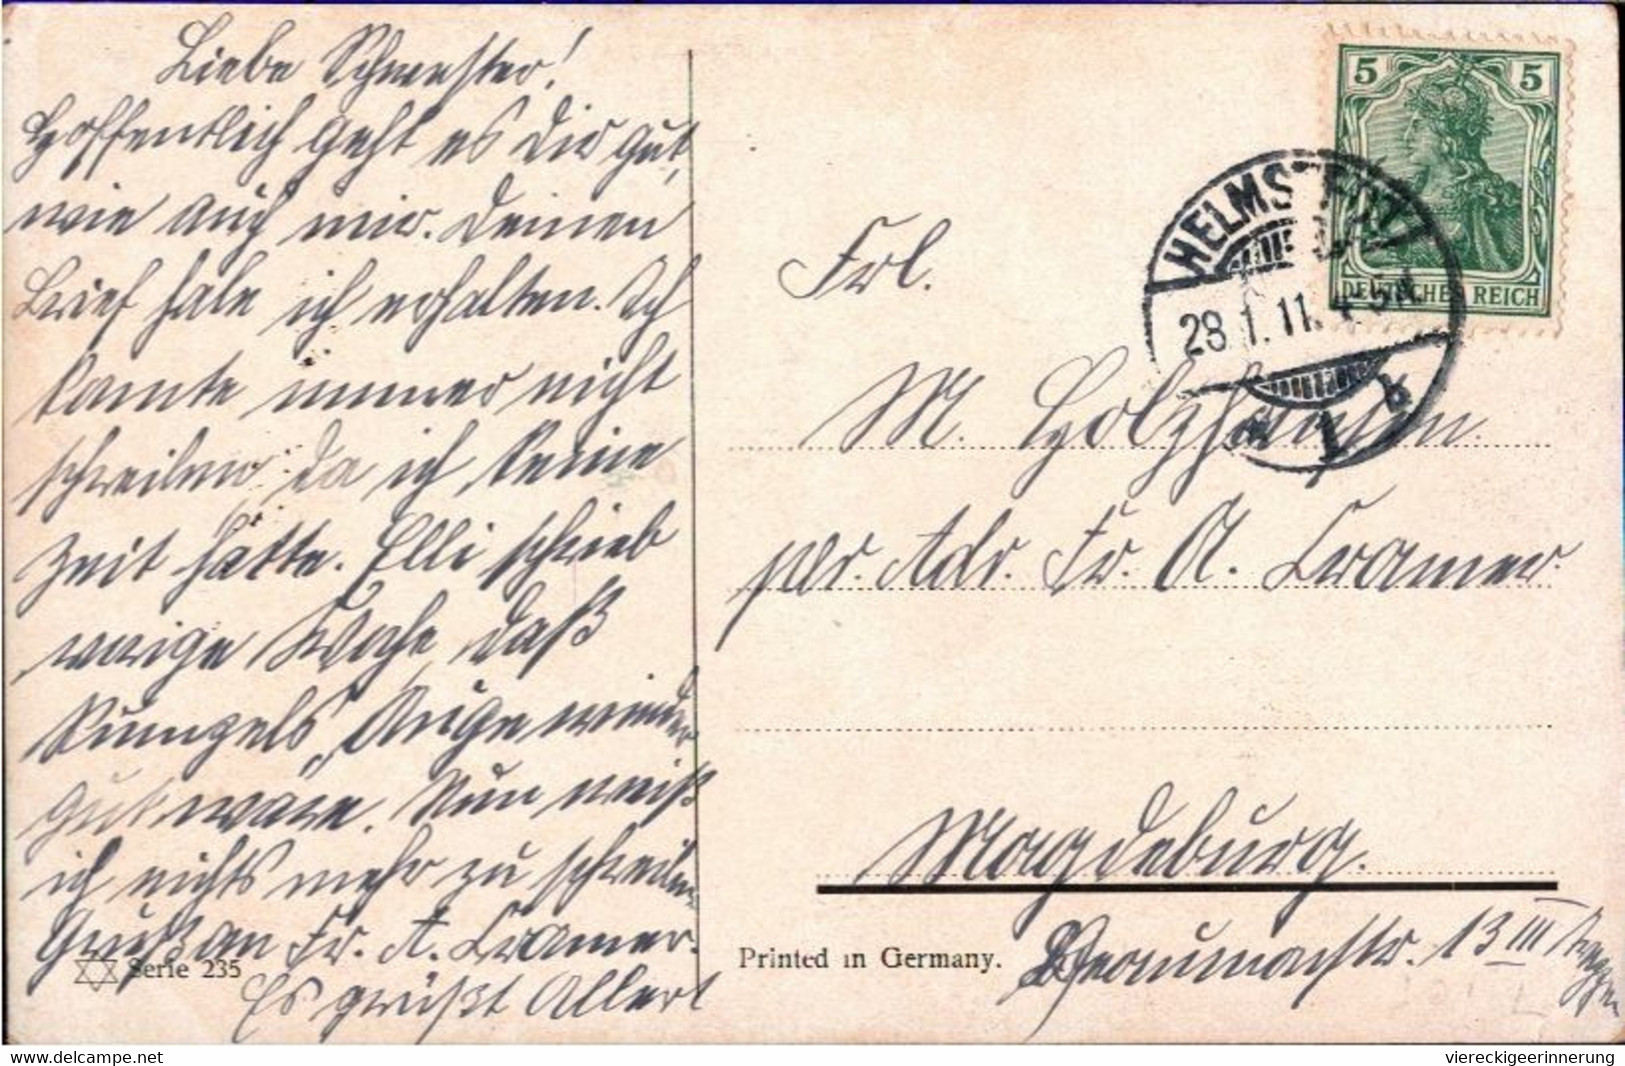 Liebe Schwester!
Hoffentlich geht es Dir gut,
wie auch mir. Deinen
Brief habe ich erhalten. Ich
konnte immer nicht
schreiben, da ich keine
Zeit hatte. Elli schrieb
vorige Woche, daß
Auge wieder
gut wäre. Nun weiß
ich nichts mehr zu schreiben.
Gruß an Fr. A. Cramer.
Es grüßt Albert
Serie 235
5 5
DEUTSCHES REICH
HELMSTEDT
28.1.11. 4-5N
* 1 b
Frl.
M. Holzhausen.
per Adr. Fr. A. Cramer.
Magdeburg.
13 III
Printed in Germany.
www.delcampe.net
viereckigeerinnerung